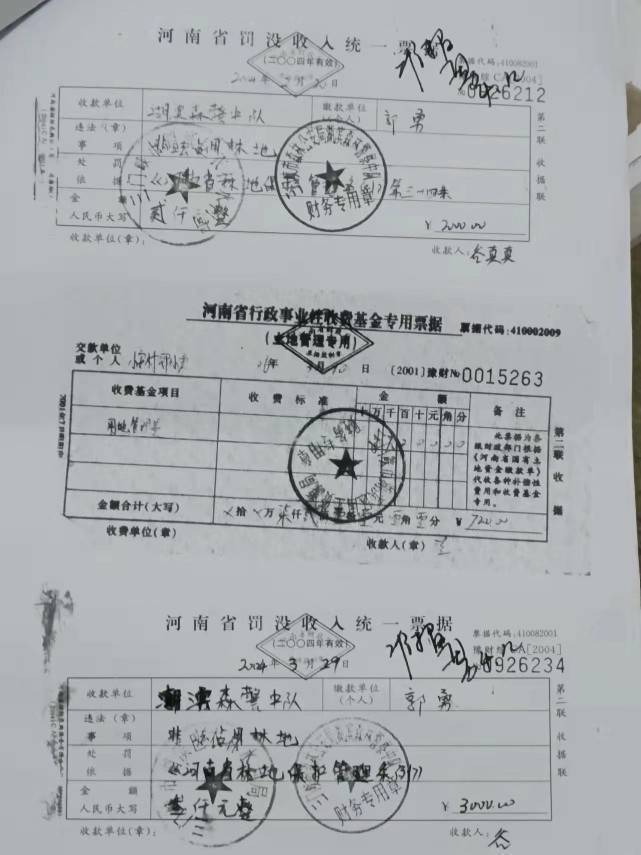 河南省罚没收入统一票据
(二〇〇四年有效)
票据代码:410082001
[2004]
0926212
收款单位 森警中队 缴款单位(个人) 郭勇
违法(章)事项 非法占用林地
处罚依据 第三十四条
金额人民币大写 贰仟元整 ¥2000.00
收款单位(章): 收款人:谷真真
财务专用章
第二联 收据联
河南省行政事业性收费基金专用票据 票据代码:410002009
(土地管理专用)
交款单位或个人 年 月 日 [2001]豫财№0015263
收费基金项目 收费标准 金额 备注
十万千百十元角分
用地管理费
此票据为各级财政部门根据《河南省国有土地资金缴款单》代收各种补偿性费用和收费基金专用。
金额合计(大写) 拾 万 柒仟 元零角零分 ¥
收费单位(章) 收款人(章)
第二联 收据
河南省罚没收入统一票据
(二〇〇四年有效)
票据代码:410082001
[2004]
2004年3月29日 0926234
收款单位 森警中队 缴款单位(个人) 郭勇
违法(章)事项 非法占用林地
处罚依据 《河南省林地保护管理条例》
金额人民币大写 叁仟元整 ¥3000.00
收款单位(章): 收款人:谷
财务专用章
第二联 收据联